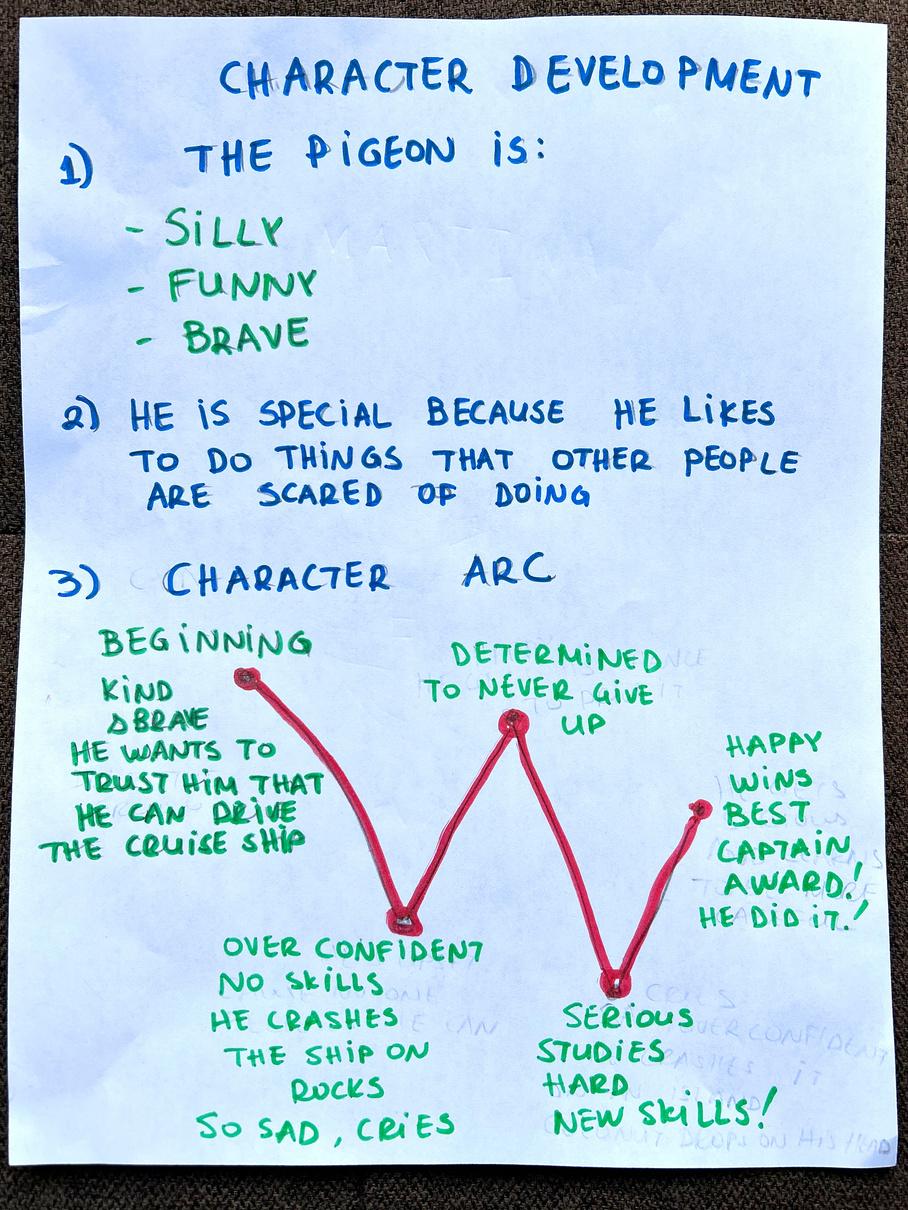 CHARACTER DEVELOPMENT
1) THE PiGEON iS:
- SiLLY
- FUNNY
- BRAVE
2) HE iS SPECIAL BECAUSE HE LiKES
TO DO THiNGS THAT OTHER PEOPLE
ARE SCARED OF DOiNG
3) CHARACTER ARC
BEGiNNiNG
KiND
BRAVE
HE WANTS TO
TRUST HiM THAT
HE CAN DRiVE
THE CRUiSE SHiP
OVER CONFiDENT
NO SKiLLS
HE CRASHES
THE SHiP ON
ROCKS
SO SAD, CRiES
DETERMiNED
TO NEVER GiVE
UP
SERiOUS
STUDiES
HARD
NEW SKiLLS!
HAPPY
WiNS
BEST
CAPTAiN
AWARD!
HE DiD iT!